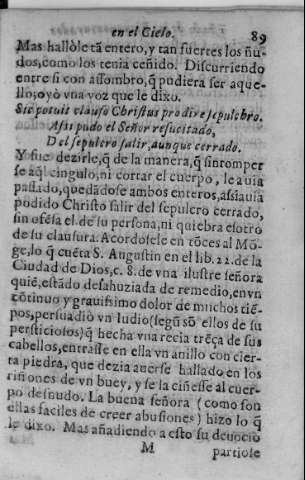 en el Cielo. 89
Mas hallòle tã entero, y tan fuertes los ñu-
dos, como los tenia ceñido. Discurriendo
entre si con assombro, q̃ pudiera ser aque-
llo; oyò vna voz que le dixo.
Sic potuit clauso Christus prodire sepulchro.
Assi pudo el Señor resucitado,
Del sepulcro salir, aunque cerrado.
Y fue dezirle, q̃ de la manera, q̃ sin romper
se aq̃l cingulo, ni cortar el cuerpo, le auia
passado, quedãdose ambos enteros, assi auia
podido Christo salir del sepulcro cerrado,
sin ofẽsa el de su persona, ni quiebra esotro
de su clausura. Acordosele en tõces al Mõ-
ge, lo q̃ cuẽta S. Augustin en el lib. 22. de la
Ciudad de Dios, c. 8. de vna ilustre señora
quiẽ, estãdo desahuziada de remedio, en vn
cõtinuo y grauissimo dolor de muchos tiẽ-
pos, persuadiò vn Iudio (segũ sõ ellos de su
persticiosos) q̃ hecha vna recia trẽça de sus
cabellos, entrasse en ella vn anillo con cier-
ta piedra, que dezia auerse hallado en los
riñones de vn buey, y se la ciñesse al cuer-
po desnudo. La buena señora (como son
ellas faciles de creer abusiones) hizo lo q̃
le dixo. Mas añadiendo a esto su deuociõ
M partiose